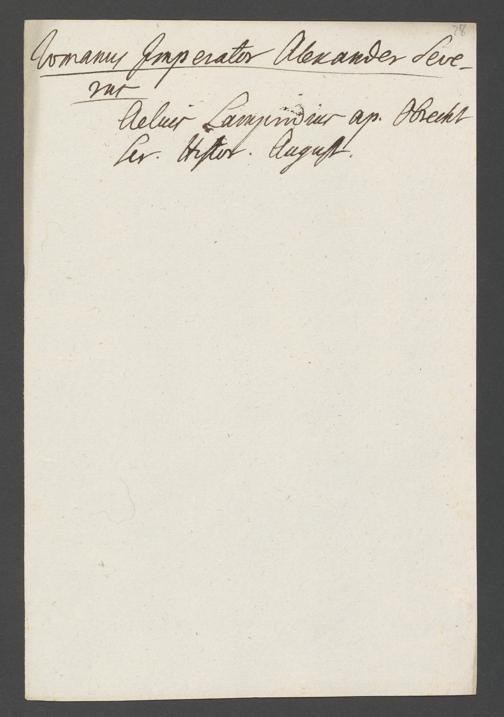 28
Romanus Imperator Alexander Seve-
rus
Aelius Lampridius ap. Obrecht
Scr. Histor. August.